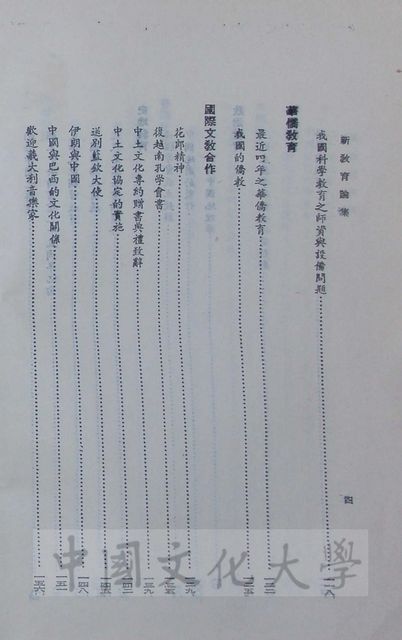 新教育論集
四
我國科學教育之師資與設備問題……一一八
華僑教育
最近四年之華僑教育……
我國的僑教……
國際文教合作
花郎精神……一二九
復越南孔學會書……
中土文化專約贈書典禮致辭……一三九
中土文化協定的實施……
送別藍欽大使……
伊朗與中國……一四八
中國與巴西的文化關係……一五一
歡迎義大利音樂家……一五六
中國文化大學